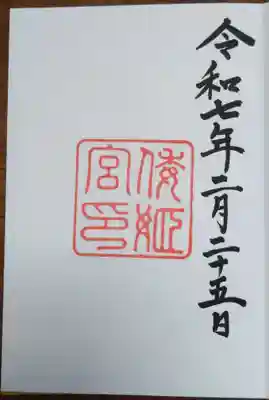 令和七年二月二十五日
倭姫
宮印